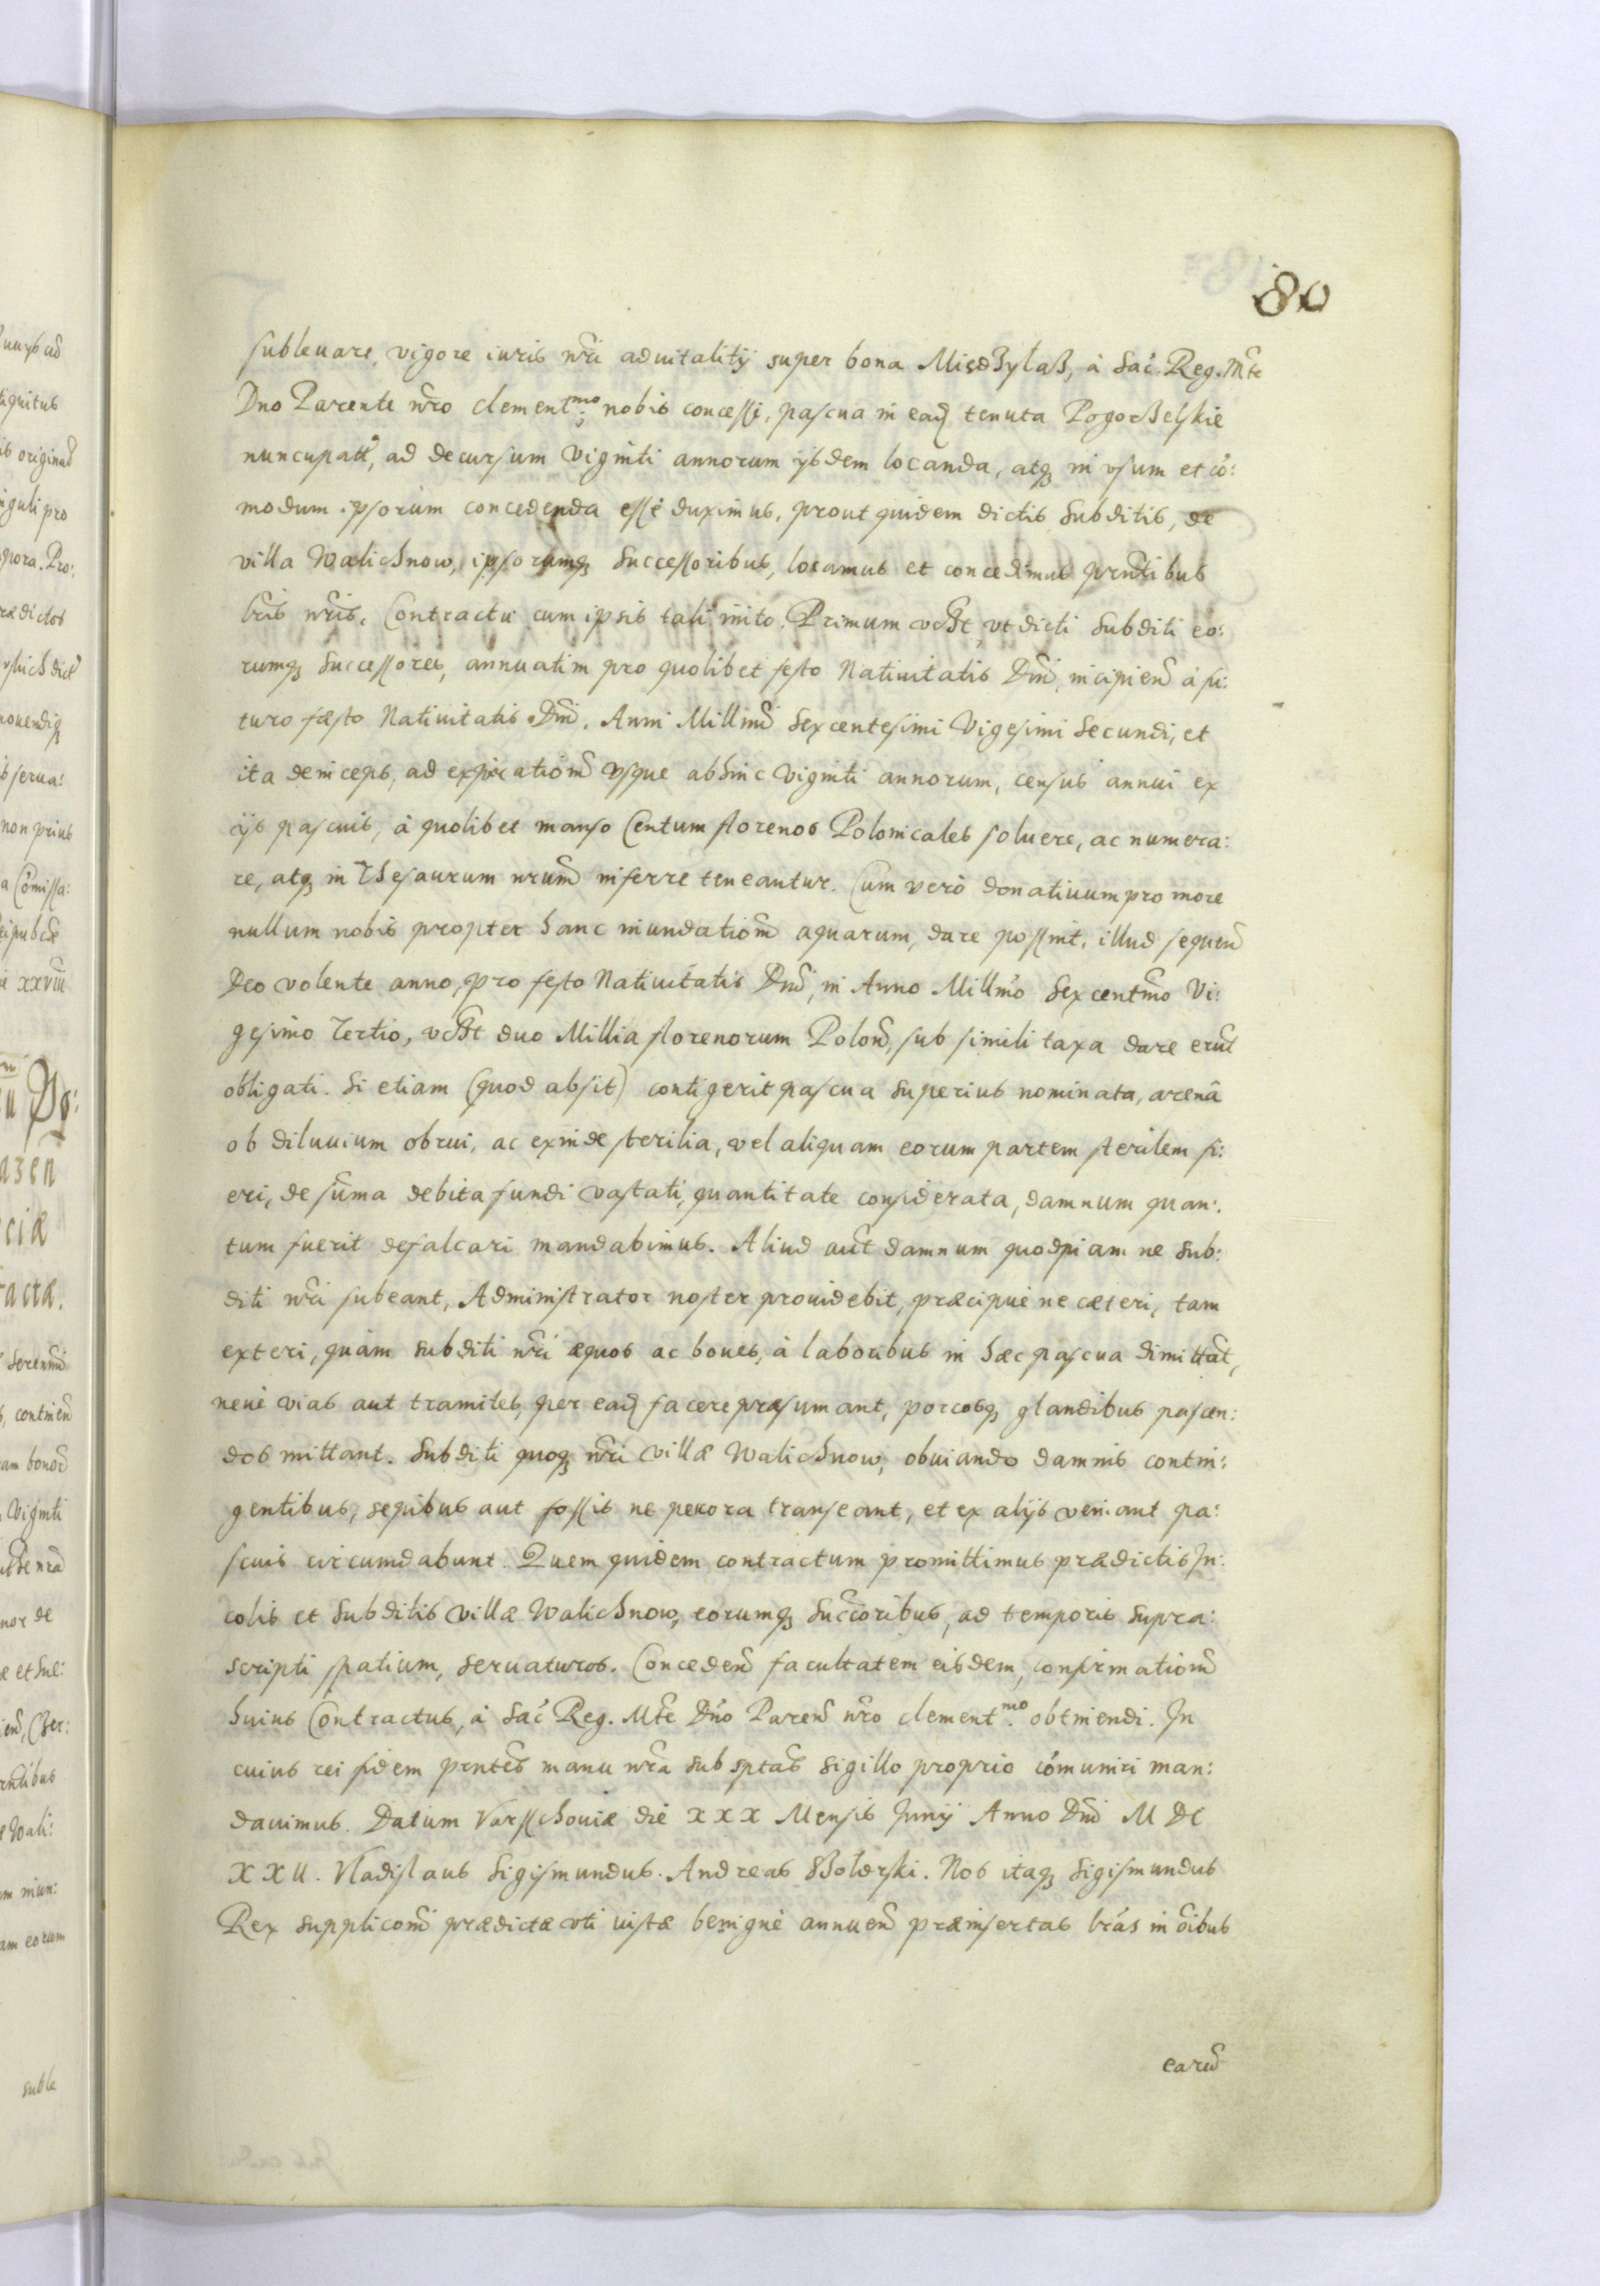 180
subleuare, vigore iuris nr̃i aduitalitij super bona MiędZylaß, à Sac̃. Reg. Mtẽ
Dno Parente nr̃o clement.mo nobis concessi, pascua in eadẽ tenuta Pogorßelskie
nuncupatt̃, ad decursum viginti annorum ijsdem locanda, atq̃ in vsum et cõ:
modum ipsorum concedenda esse duximus, prout quidem dictis Subditis, de
villa Walichnow, ipsorumq̃ Successoribus, locamus et concedimus pr̃ntibus
lr̃is nr̃is, Contractu cum ipsis tali inito. Primum vdßt, vt dicti Subditi eo:
rumq̃ Successores, annuatim pro quolibet festo Natiuitatis Dn̄i, incipien̄ à fu:
turo fæsto Natiuitatis Dn̄i, Anni Millmi Sexcentesimi Vigesimi Secundi, et
ita deinceps, ad expirationẽ vsque abhinc viginti annorum, census annui ex
ijs pascuis, à quolibet manso Centum florenos Polonicales soluere, ac numera:
re, atq̃ in Thesaurum nrum̃ inferre teneantur. Cum verò donatiuum pro more
nullum nobis propter hanc inundationẽ aquarum, dare possint, illud sequen̄
Deo volente anno, pro festo Natiuitatis Dn̄i, in Anno Millm̃o Sexcentm̃o Vi:
gesimo Tertio, vdßt duo Millia florenorum Polon̄, sub simili taxa dare erũt
obligati. Si etiam (quod absit) contigerit pascua superius nominata, arenâ
ob diluuium obrui, ac exinde sterilia, vel aliquam eorum partem sterilem fi:
eri, de sũma debita fundi vastati, quantitate considerata, damnum quan:
tum fuerit defalcari mandabimus. Aliud aut̃ damnum quodpiam ne Sub:
diti nr̃i subeant, Administrator noster prouidebit, præcipuè ne cæteri, tam
exteri, quàm subditi nr̃i æquos ac boues, à laboribus in hæc pascua dimittãt,
neuè vias aut tramites, per eadẽ facere præsumant, porcosq̃ glandibus pascen:
dos mittant. Subditi quoq̃ nr̃i villæ Walichnow, obuiando damnis contin:
gentibus, sepibus aut fossis ne pecora transeant, et ex alijs veniant pa:
scuis circumdabunt. Quem quidem contractum promittimus prædictis In:
colis et Subditis villæ Walichnow, eorumq̃ Succ̃oribus, ad temporis supra:
scripti spatium, seruaturos. Conceden̄ facultatem eisdem, confirmationẽ
huius Contractus, à Sac̃ Reg. Mtẽ Dño Paren̄ nr̃o clement.mo obtinendi. In
cuius rei fidem pr̃ntes manu nr̃a subsptãs sigillo proprio cõmuniri man:
dauimus. Datum Varsschouiæ die XXX Mensis Junij Anno Dn̄i M DC
XXII. Vladislaus Sigismundus. Andreas Szołdrski. Nos itaq̃ Sigismundus
Rex supplicõni prædictæ vti iustæ benignè annuen̄ præinsertas lr̃as in õibus
earũ